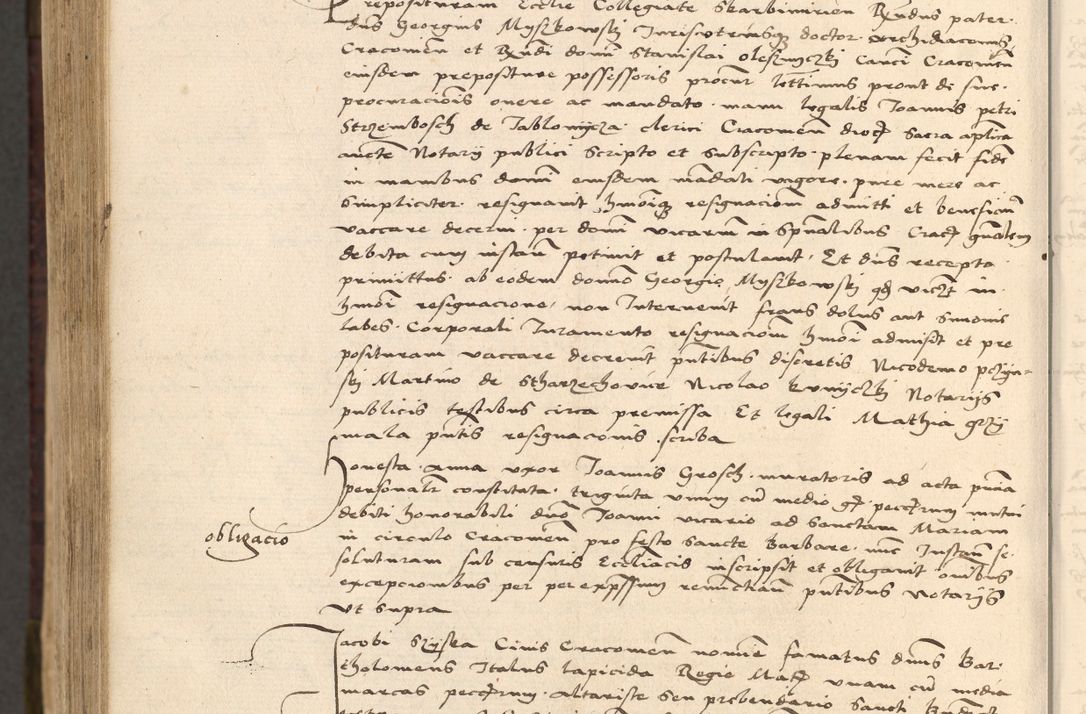 Preposituram Ecclie Collegiate Skarbimirien Rndus pater
dns Georgius Myszkowski Jurisvtriusq doctor Archidiaconus
Cracomien et Rndi domi Stanislai oleszniczki Canci Cracomien
eiusdem prepositure possessoris procur lettimus pront de sue
procuracionis onere ac mandato manu legalis Joannis petri
Strzembosch de Jablonycza clerici Cracomien dioc sacra aplica
aucte Notarij publici scripto et subscripto plenam fecit fidem
in manibus domi eiusdem mandati vigore pure mere ac
simpliciter resignavit hmoiq resignacionem admitti et beneficium
vaccare decerni per domi vicarium in spualibus Crac gnalem
debita cum instan petivit et postulavit Et dns recepta
primittus ab eodem domno Georgio Myszkowski qd viczt in
hmoi resignacione non Intervenit fraus dolus aut simonis
labes Corporali Juramento resignacionem hmoi admisit et pre
posituram vaccare decrevit pntibus discretis Nicodemo
ski Martino de Stharzechovice Nicolao Notarijs
publicis testibus circa premissa Et legali Mathia grzy
mala pntis resignaconis scriba
Honesta Anna vxor Joannis Grosch muratoris ad acta pnia
personalr constituta triginta vnum cu medio gr pecciarum mutui
debiti honorabili dno Joanni vicario ad Sanctam Mariam
obligacio
in circulo Cracomien pro festo Sancte Barbare nunc Instan se
soluturam sub censuris Ecclliacis inscripsit et obligavit omibus
excepcionibus per per expssum renunctian pntibus Notarijs
vt supra
Jacobi Szyska Civis Cracomien nomie famatus dnus Bar
tholomeus Italus lapicida Regie Matis vnam cu media
marcas pecciarum altariste seu prebendario Sancti